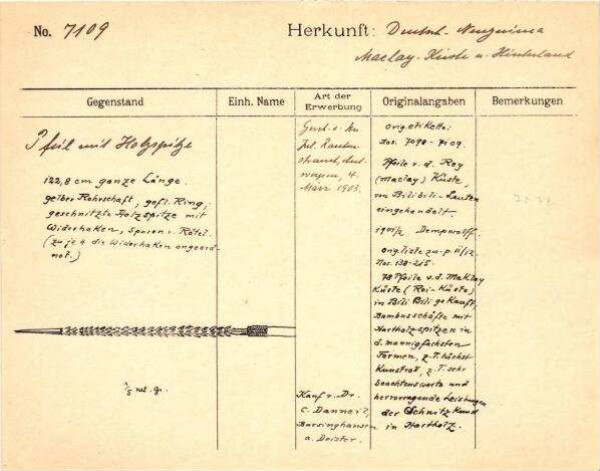 No. 7109
Herkunft: Deutsch-Neuguinea
Maclay-Küste u. Hinterland
Gegenstand
Einh. Name
Art der Erwerbung
Originalangaben
Bemerkungen
Pfeil mit Holzspitze
122,8 cm ganze Länge.
gelber Rohrschaft, gefl. Ring,
geschnitzte Holzspitze mit
Widerhaken, Spuren v. Rötel.
(zu je 4 die Widerhaken angeord-
net.)
1/5 nat. gr.
März 1905.
Kauf v. Dr.
C. Danneil,
Barsinghausen
a. Deister.
orig. etikette:
Nos. 7098 - 7109.
Pfeile v. d. Rey
(Maclay) Küste,
von Bilibili-Leuten
eingehandelt.
Dempwolff.
orig. liste
Nos. 138-215.
78 Pfeile v. d. Maklay
Küste (Rai-Küste)
in Bili Bili gekauft.
Bambusschäfte mit
Hartholzspitzen in
d. mannigfachsten
Formen, z. T. höchst
kunstvoll, z. T. sehr
beachtenswerte und
hervorragende Leistungen
der Schnitzkunst
in Hartholz.